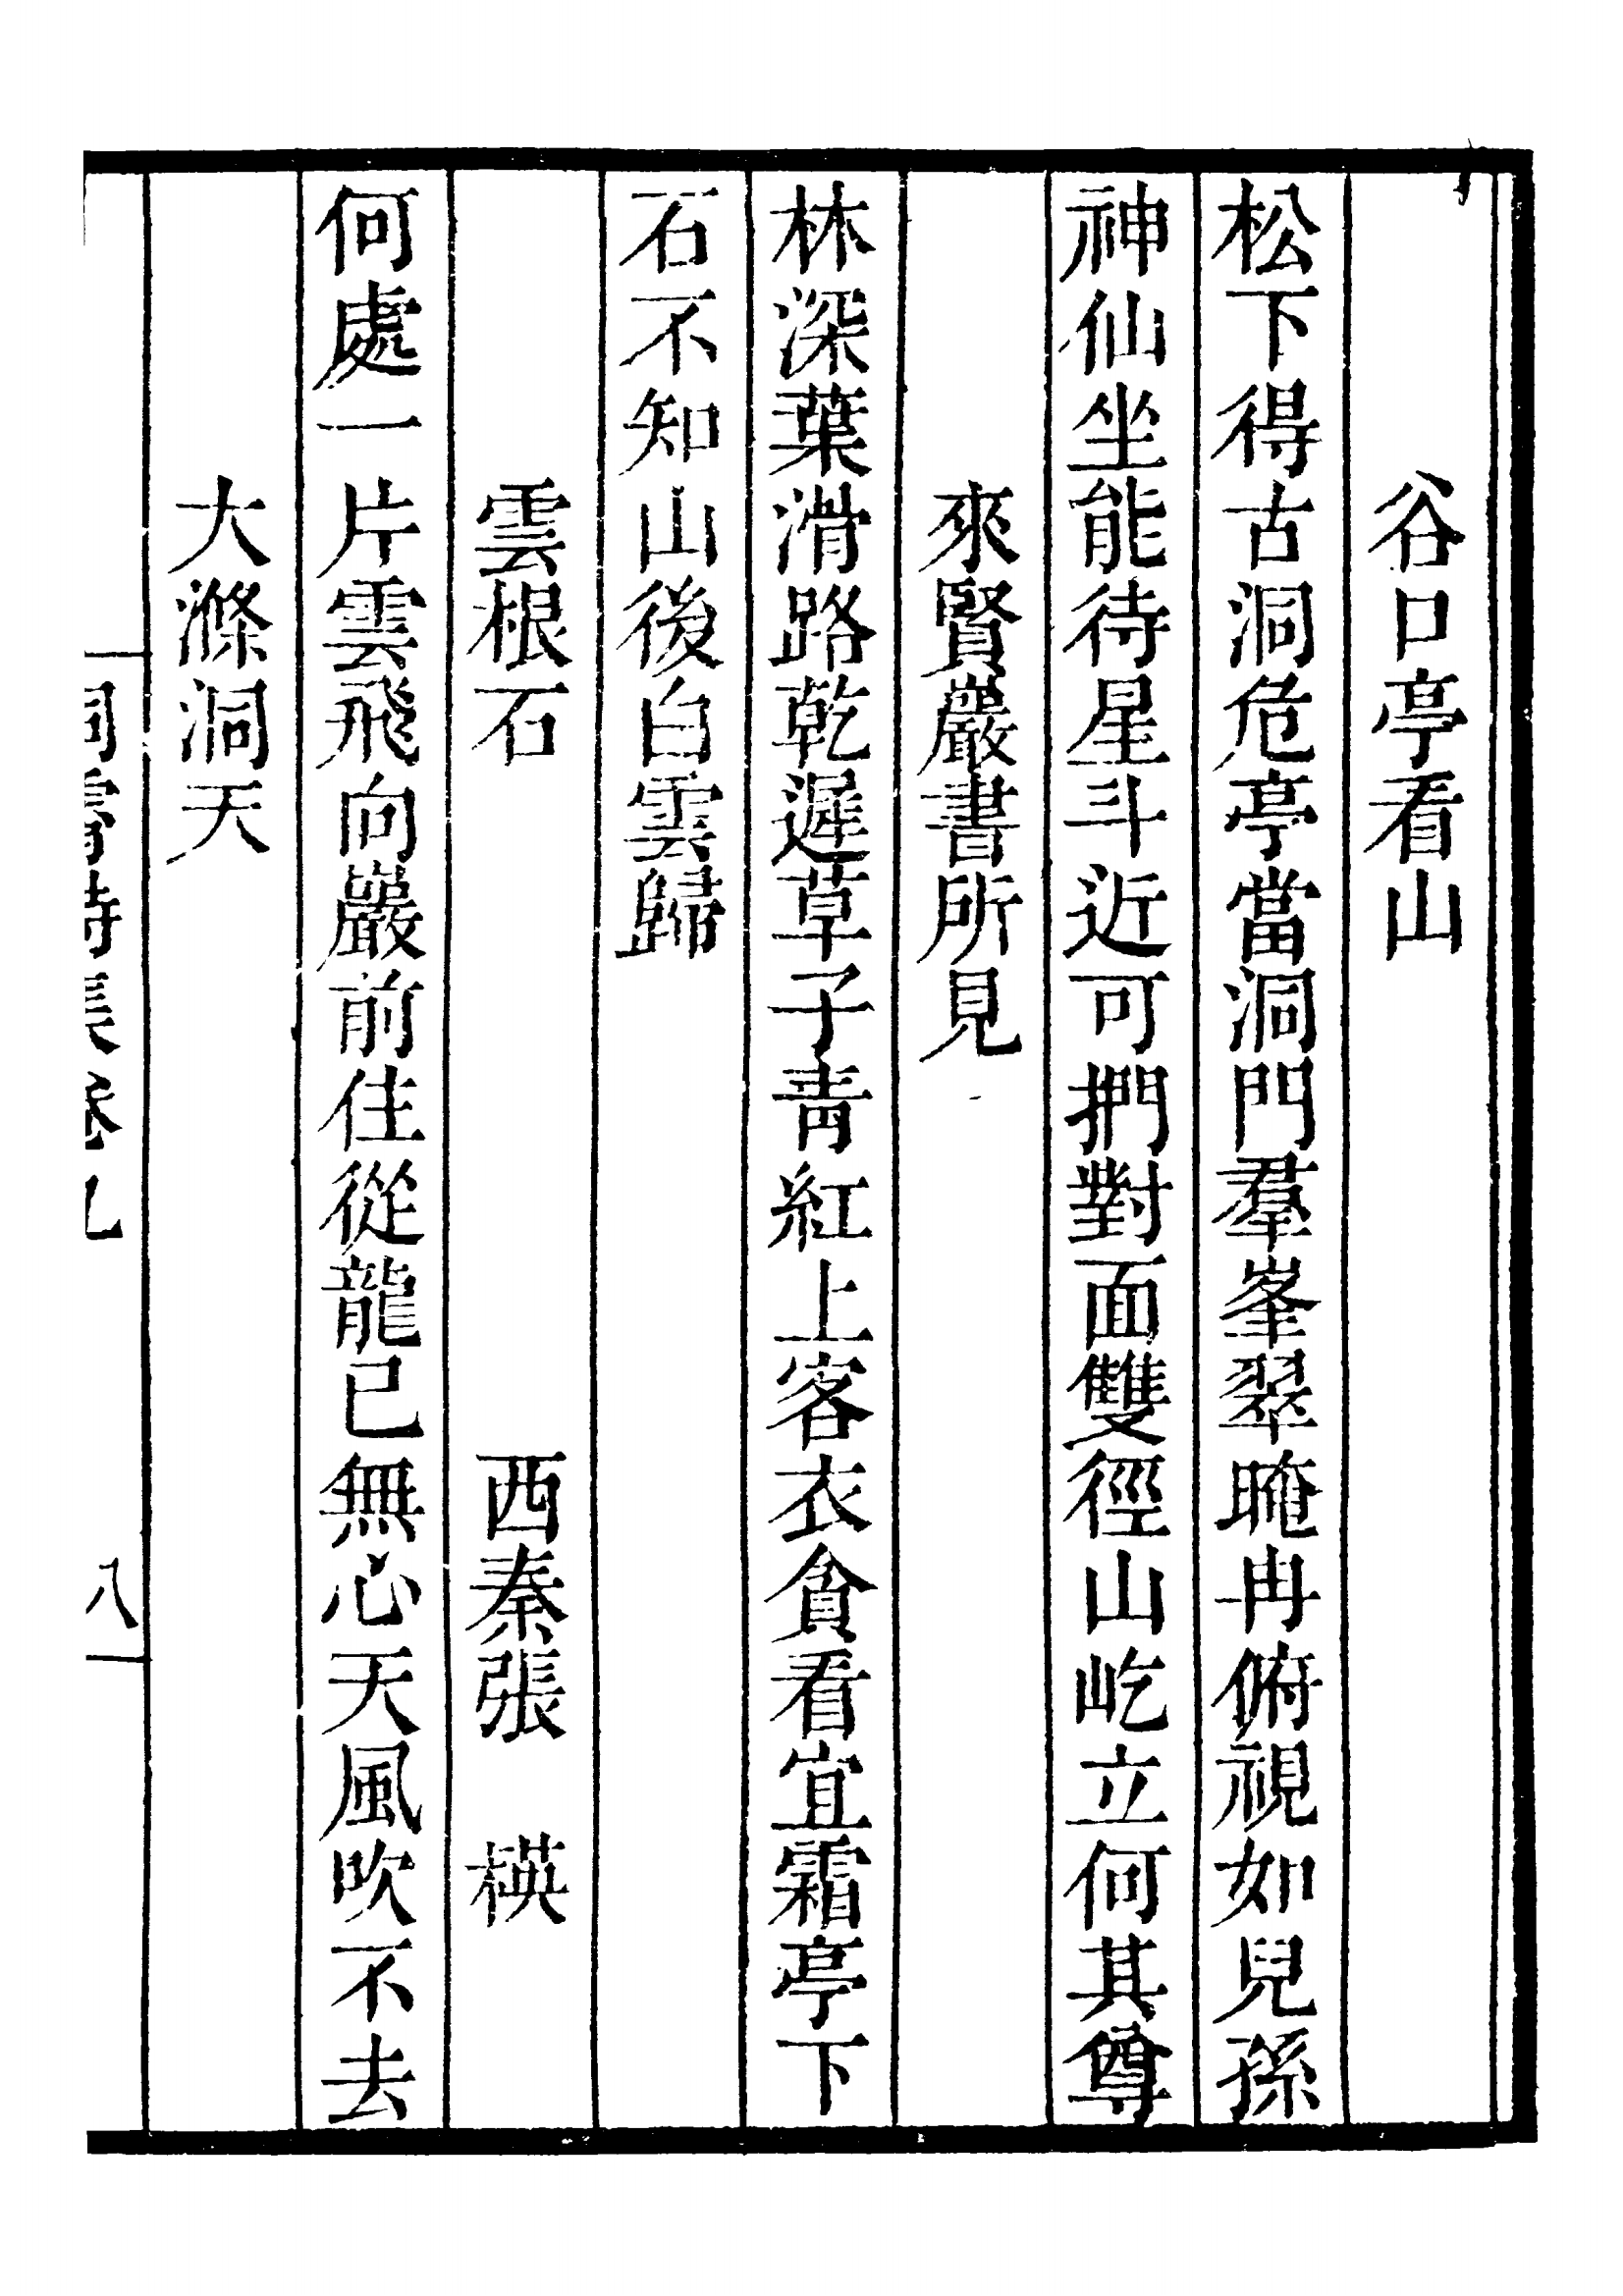 谷口亭看山
松下得古洞危亭當洞門羣峯翠晻冉俯視如兒孫
神仙坐能待星斗近可捫對面雙徑山屹立何其尊
來賢巖書所見
林深葉滑路乾遲草子青紅上客衣貪看宜霜亭下
石不知山後白雲歸
雲根石 西秦張 楧
何處一片雲飛向巖前住從龍已無心天風吹不去
大滌洞天
洞霄詩集卷九 八